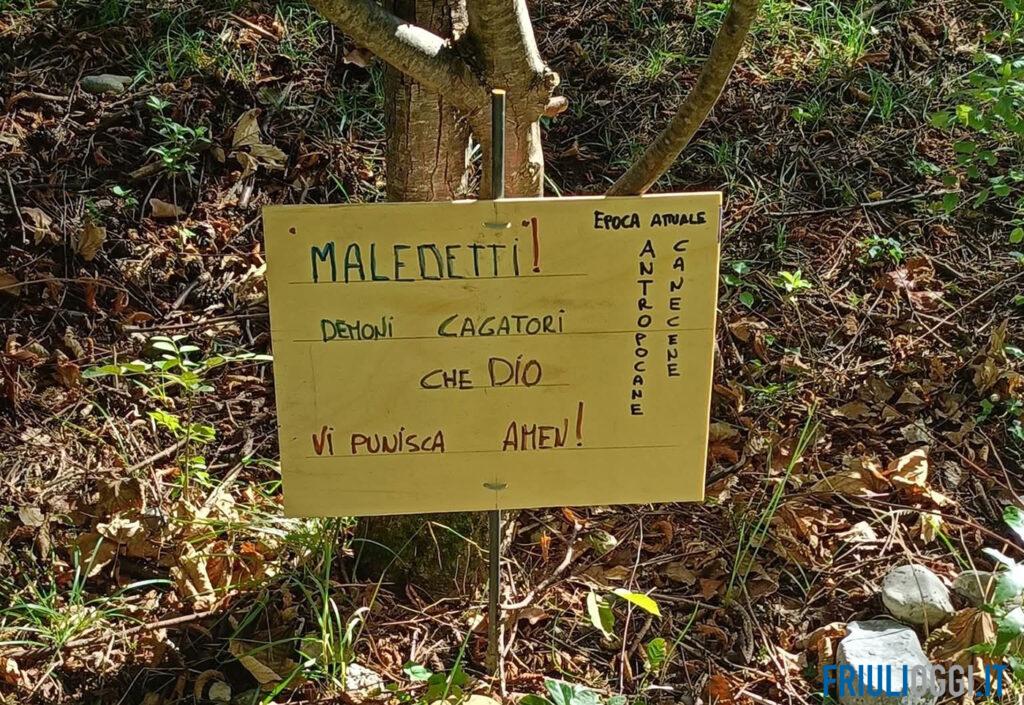 MALEDETTI!
DEMONI CAGATORI
CHE DIO
VI PUNISCA AMEN!
EPOCA ATTUALE
ANTROPOCANE
CANECENE
FRIULIOGGI.IT